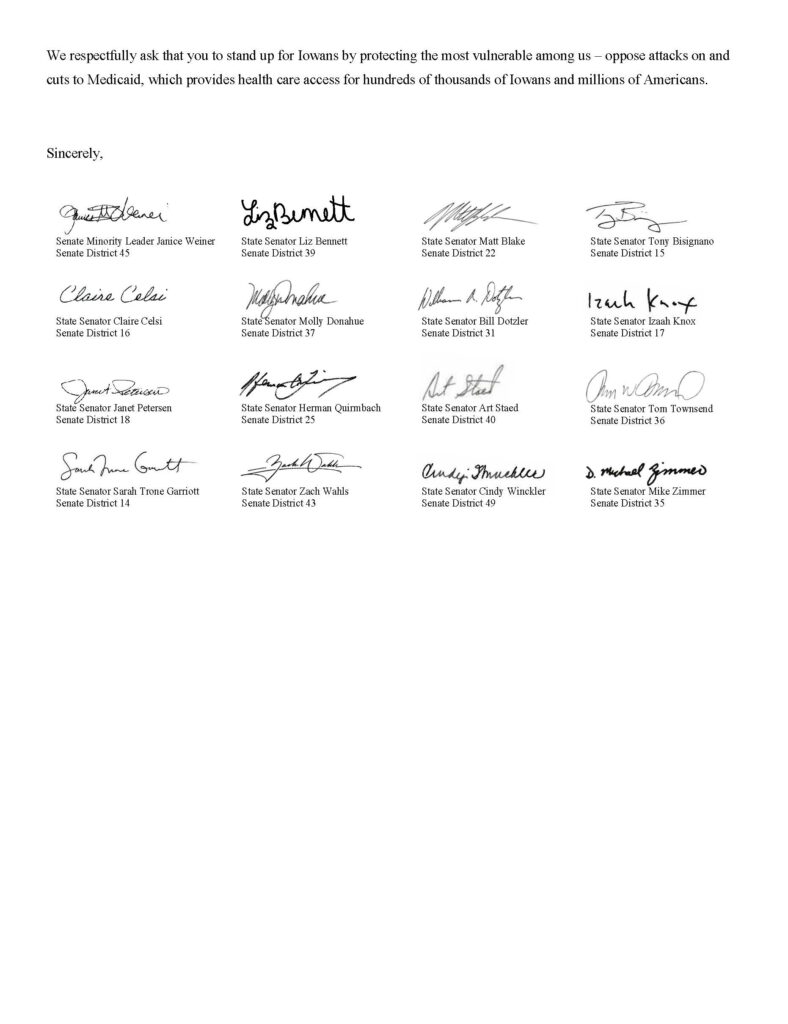 We respectfully ask that you to stand up for Iowans by protecting the most vulnerable among us – oppose attacks on and
cuts to Medicaid, which provides health care access for hundreds of thousands of Iowans and millions of Americans.
Sincerely,
Liz Bennett
Senate Minority Leader Janice Weiner
Senate District 45
State Senator Liz Bennett
Senate District 39
State Senator Matt Blake
Senate District 22
State Senator Tony Bisignano
Senate District 15
Claire Celsi
Molly Donahue
William A. Dotzler
Izaah Knox
State Senator Claire Celsi
Senate District 16
State Senator Molly Donahue
Senate District 37
State Senator Bill Dotzler
Senate District 31
State Senator Izaah Knox
Senate District 17
Janet Petersen
Art Staed
State Senator Janet Petersen
Senate District 18
State Senator Herman Quirmbach
Senate District 25
State Senator Art Staed
Senate District 40
State Senator Tom Townsend
Senate District 36
Sarah Trone Garriott
Zach Wahls
Cindy Winckler
D. Michael Zimmer
State Senator Sarah Trone Garriott
Senate District 14
State Senator Zach Wahls
Senate District 43
State Senator Cindy Winckler
Senate District 49
State Senator Mike Zimmer
Senate District 35